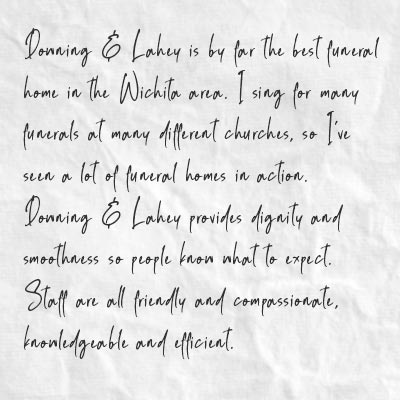 Downing & Lahey is by far the best funeral
home in the Wichita area. I sing for many
funerals at many different churches, so I've
seen a lot of funeral homes in action.
Downing & Lahey provides dignity and
smoothness so people know what to expect.
Staff are all friendly and compassionate,
knowledgeable and efficient.